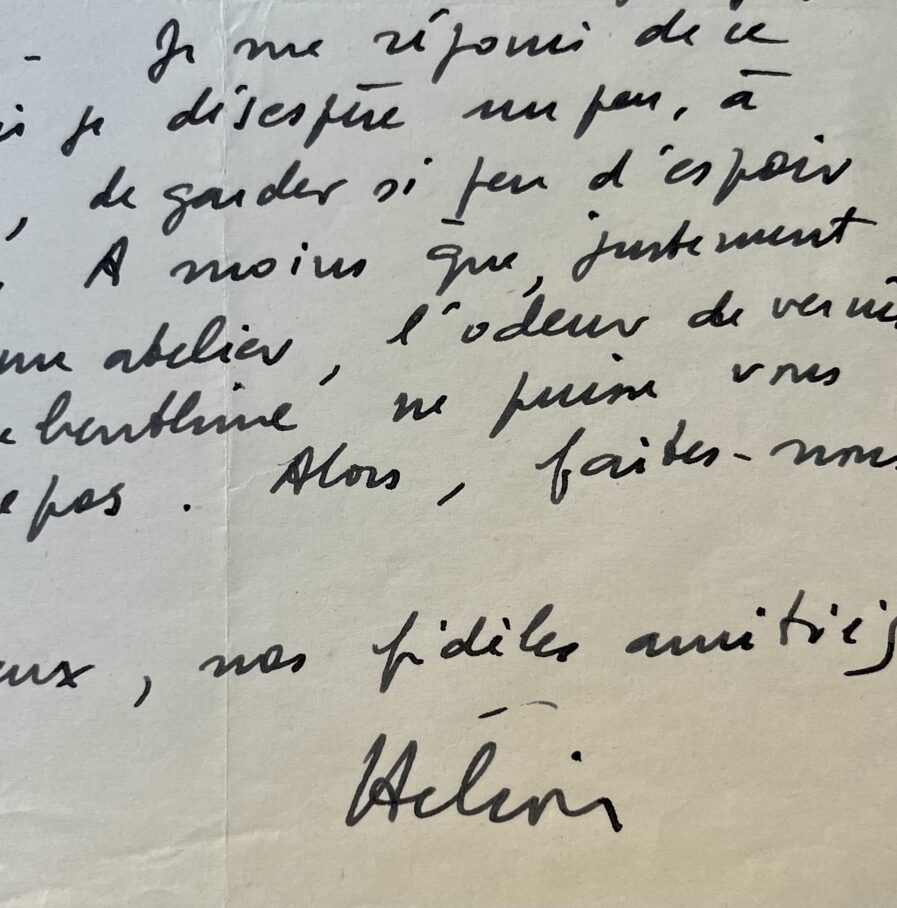 - Je me réjouis de ce
je désespère un peu, à
, de garder si peu d'espoir
. A moins que, justement
atelier, l'odeur de vernis
benthine ne puisse vous
pas. Alors, faites-nous
eux, nos fidèles amitiés
Hélion